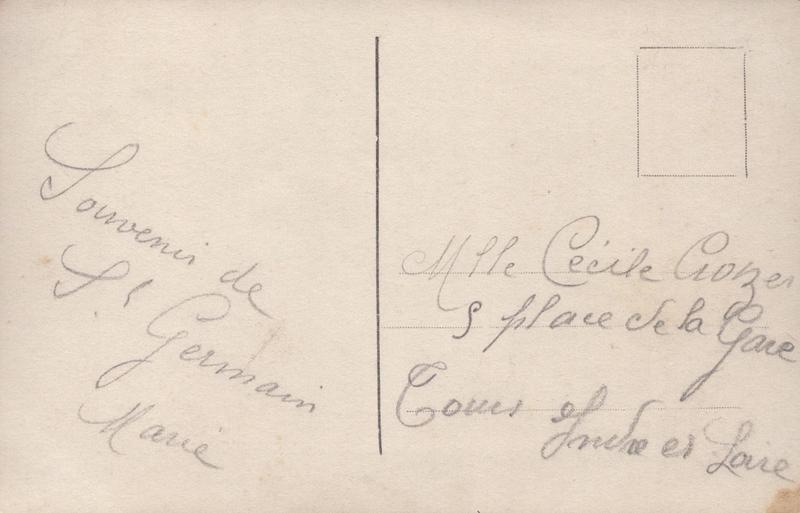 Souvenir de
St Germain
Marie
Mlle Cécile
place de la Gare
Tours
Indre et Loire